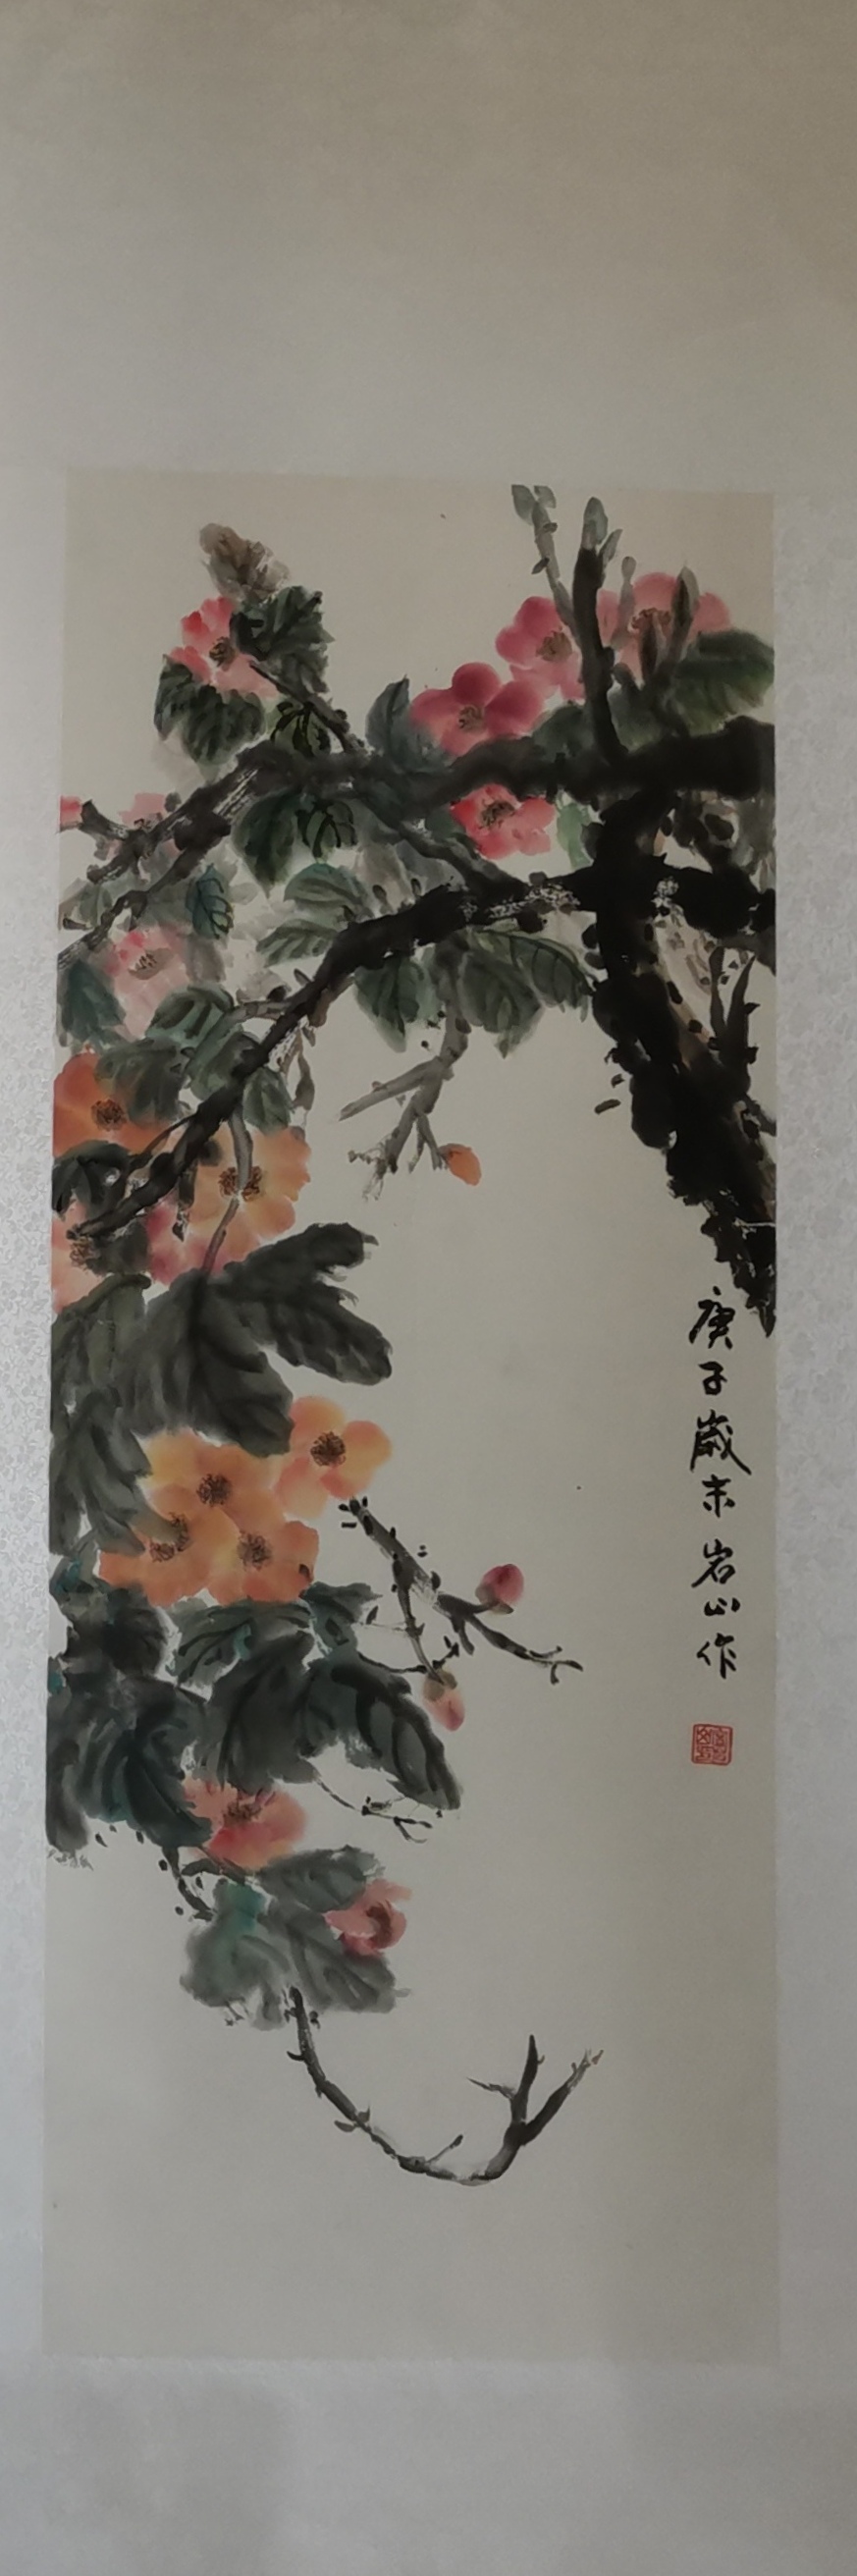 庚子歲末岩山作